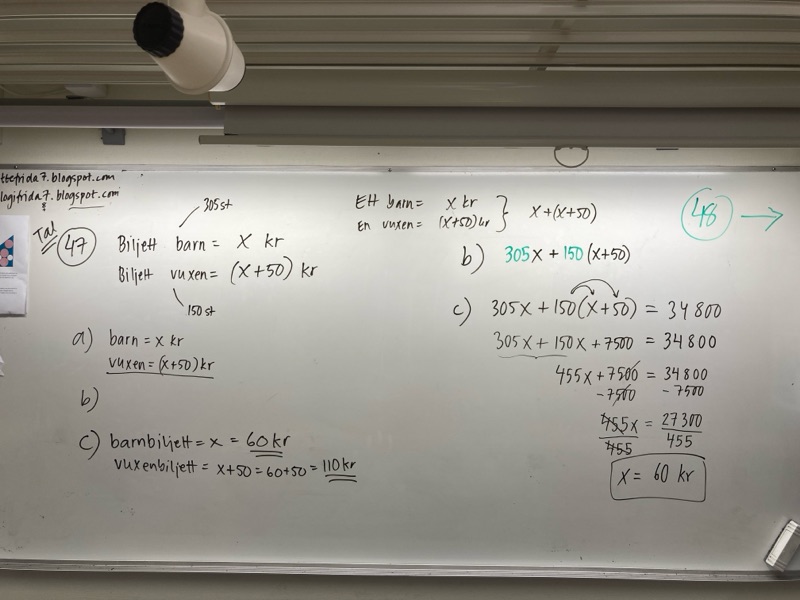 ttefrida7.blogspot.com
logifrida7.blogspot.com
Tal 47
305 st
Biljett barn = x kr
Biljett vuxen = (x+50) kr
150 st
a) barn = x kr
vuxen = (x+50) kr
b)
c) barnbiljett = x = 60 kr
vuxenbiljett = x+50 = 60+50 = 110 kr
Ett barn = x kr
En vuxen = (x+50) kr } x+(x+50)
b) 305x + 150(x+50)
c) 305x + 150(x+50) = 34800
305x + 150x + 7500 = 34800
455x + 7500 = 34800
-7500 -7500
455x = 27300
455 455
x = 60 kr
48 →